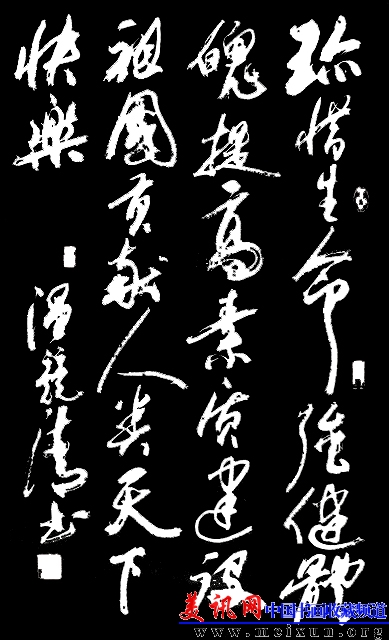 珍惜生命強健體
魄提高素质建設
祖國贡献人类天下
快樂
温
书
美讯网 中国书画收藏频道
www.meixun.org